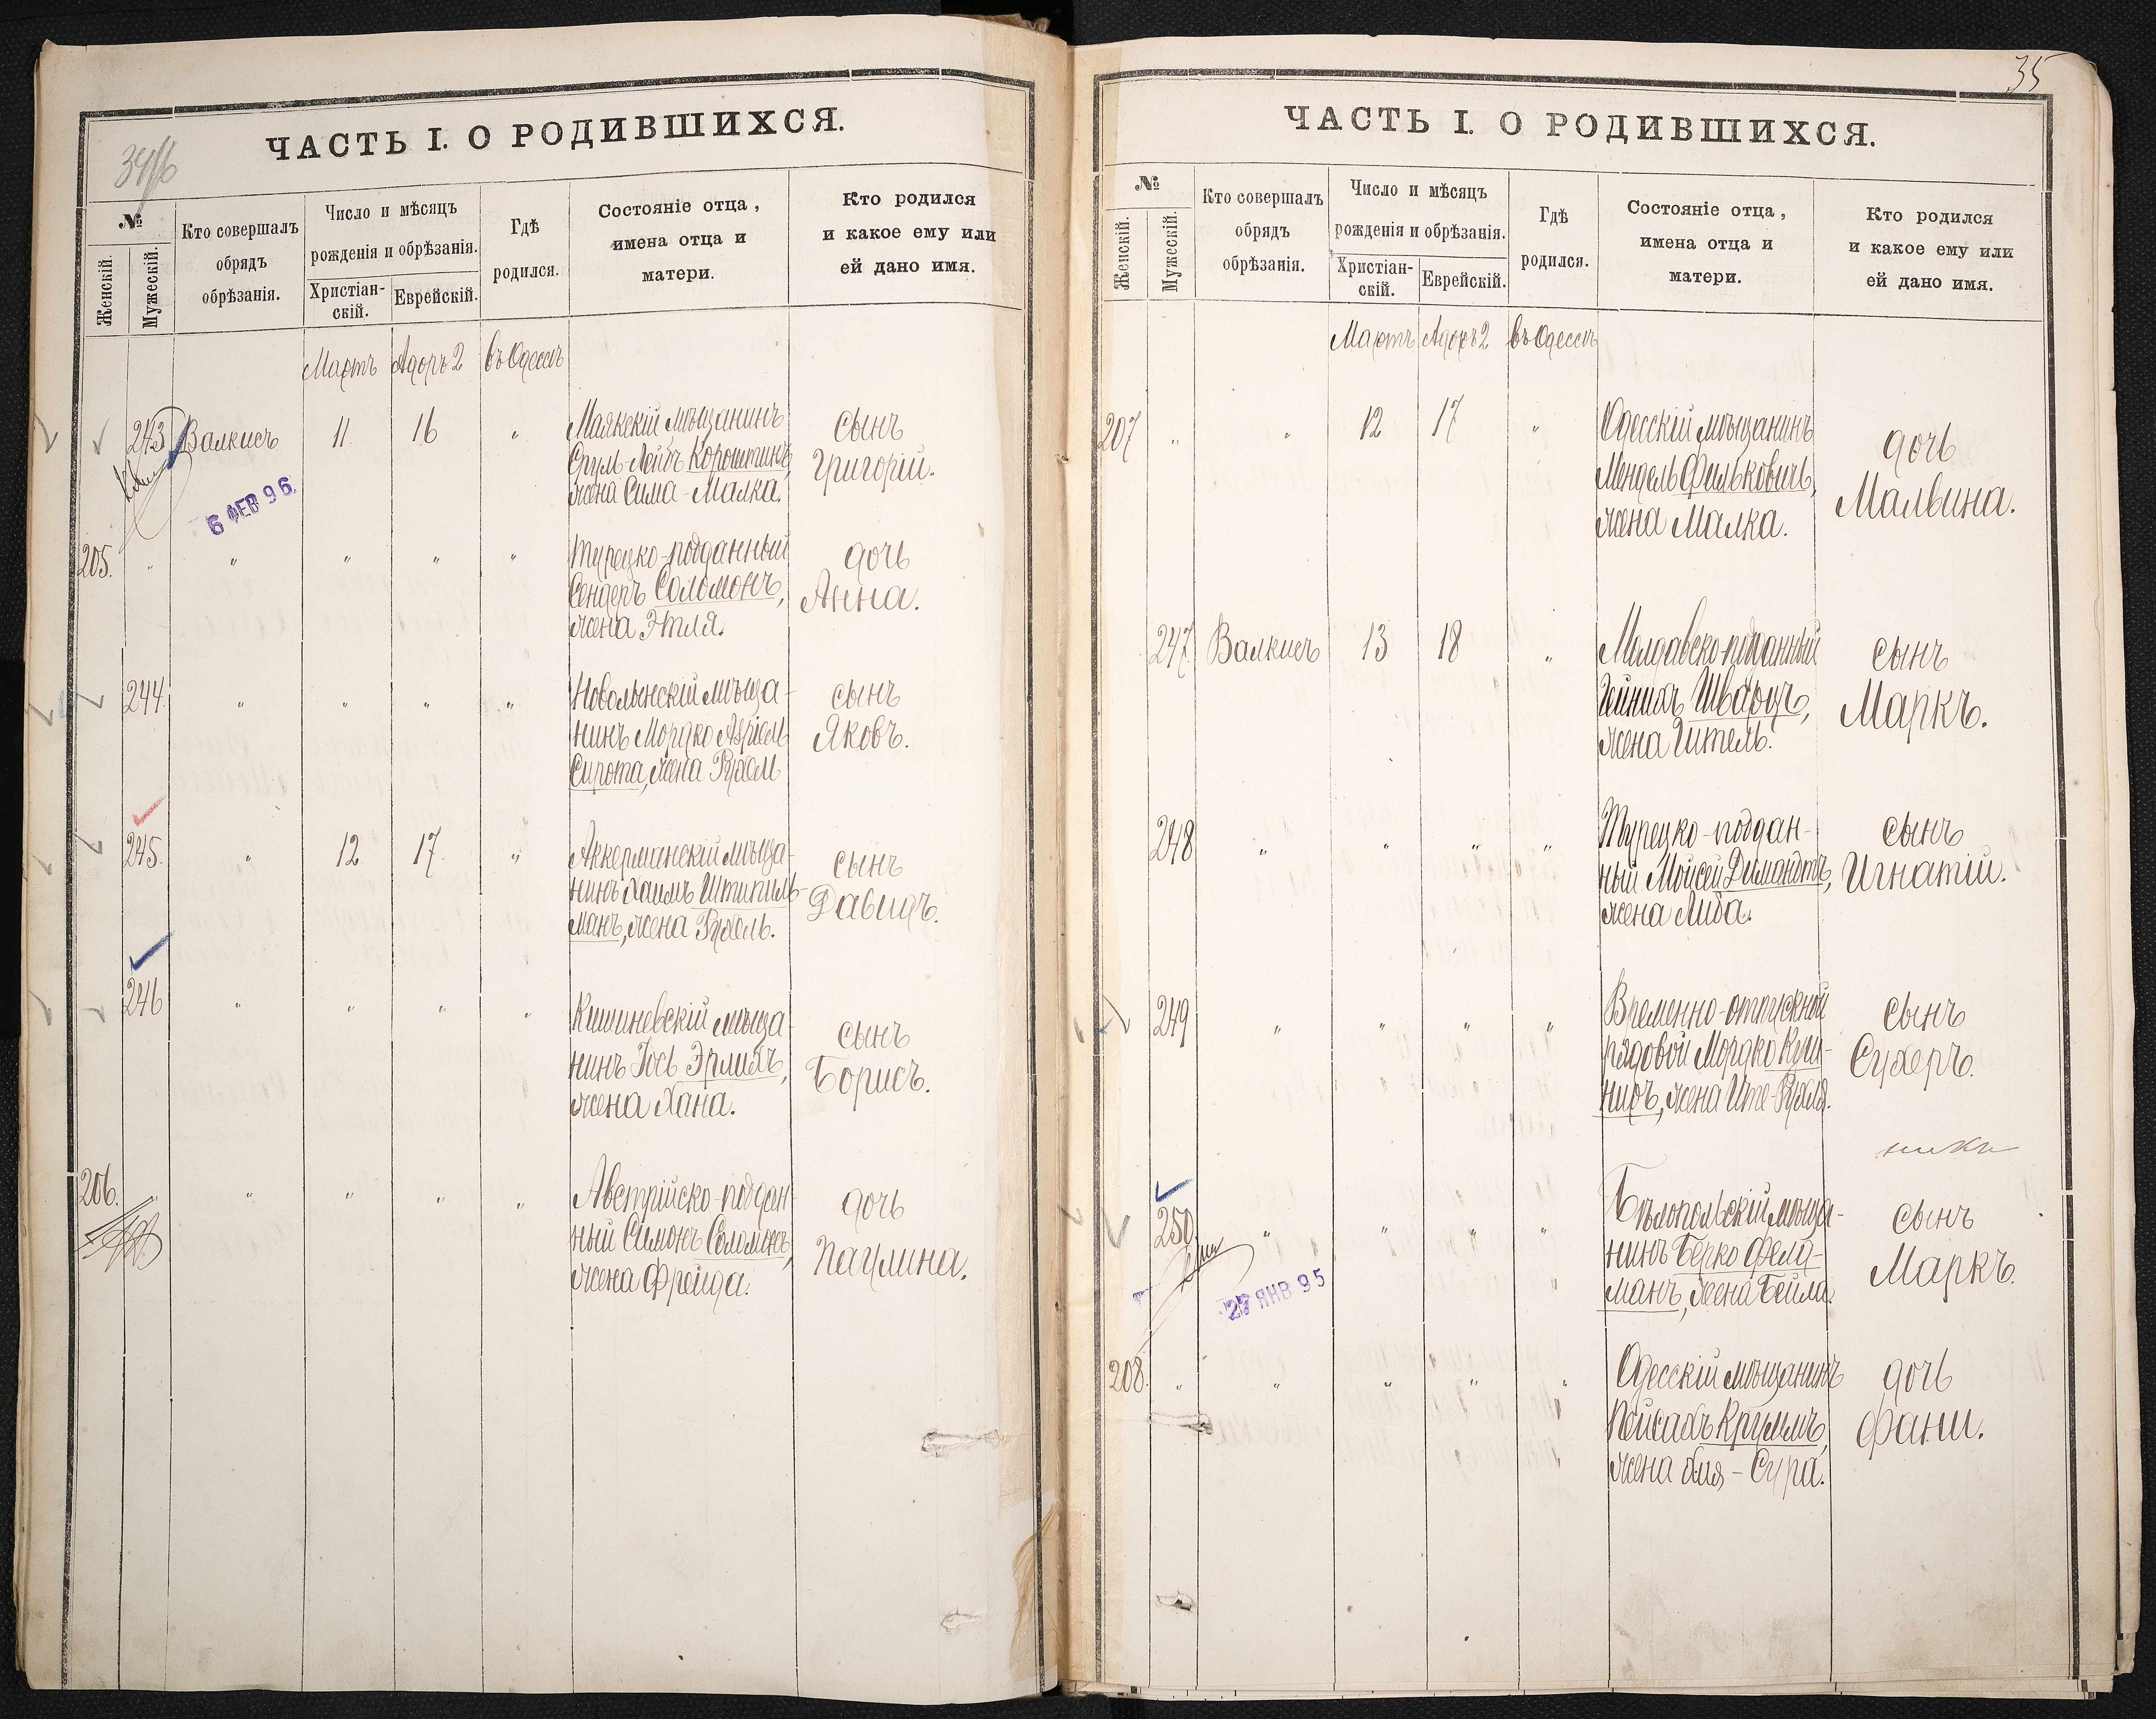 ЧАСТЬ I. О РОДИВШИХСЯ.
№
Женскій.
Мужескій.
Кто совершалъ
обрядъ
обрѣзанія.
Число и мѣсяцъ
рожденія и обрѣзанія.
Христіан-
скій.
Еврейскій.
Гдѣ
родился.
Состояніе отца,
имена отца и
матери.
Кто родился
и какое ему или
ей дано имя.
Мартъ Адаръ 2 въ Одессѣ
243 Валкисъ 11 16 "
Маякскій мѣщанинъ
Сруль-Лейбъ Короштинъ,
жена Сима-Малка.
сынъ
Григорій.
6 ФЕВ 96
205. " " " " "
Турецко-подданный
Сендеръ Соломонъ,
жена Этля.
дочь
Анна.
244. " " " "
мѣща-
нинъ Мордко Азріель
Сирота, жена Рухель
сынъ
Яковъ.
245. " 12 17. "
Аккерманскій мѣща-
нинъ Хаимъ Штипиль-
манъ, жена Рухель.
сынъ
Давидъ.
246 " " " "
Кишиневскій мѣща-
нинъ Іось Эрлихъ,
жена Хана.
сынъ
Борисъ.
206. " " " " "
Австрійско-поддан-
ный Симонъ Соломонъ,
жена Фрейда.
дочь
Паулина.
35
ЧАСТЬ I. О РОДИВШИХСЯ.
№
Женскій.
Мужескій.
Кто совершалъ
обрядъ
обрѣзанія.
Число и мѣсяцъ
рожденія и обрѣзанія.
Христіан-
скій.
Еврейскій.
Гдѣ
родился.
Состояніе отца,
имена отца и
матери.
Кто родился
и какое ему или
ей дано имя.
Мартъ Адаръ 2 въ Одессѣ
207 " " 12 17 "
Одесскій мѣщанинъ
Мендель Фильковичъ,
жена Малка.
дочь
Малвина.
247. Валкисъ 13 18 "
Молдавско-подданный
Гейнихъ Шварцъ,
жена Гитель.
сынъ
Маркъ.
248 " " " "
Турецко-поддан-
ный Мойсей Димандтъ,
жена Либа.
сынъ
Игнатій.
249 " " " "
Временно-отпускной
рядовой Мордко Куш-
ниръ, жена Ите-Рухля.
сынъ
Сухеръ.
250. " " " "
Бѣлопольскій мѣща-
нинъ Берко Фельд-
манъ, жена Бейла.
сынъ
Маркъ.
27 ЯНВ 95
208. " " " " "
Одесскій мѣщанинъ
Пейсахъ Крумъ,
жена Хая-Сура.
дочь
Фани.